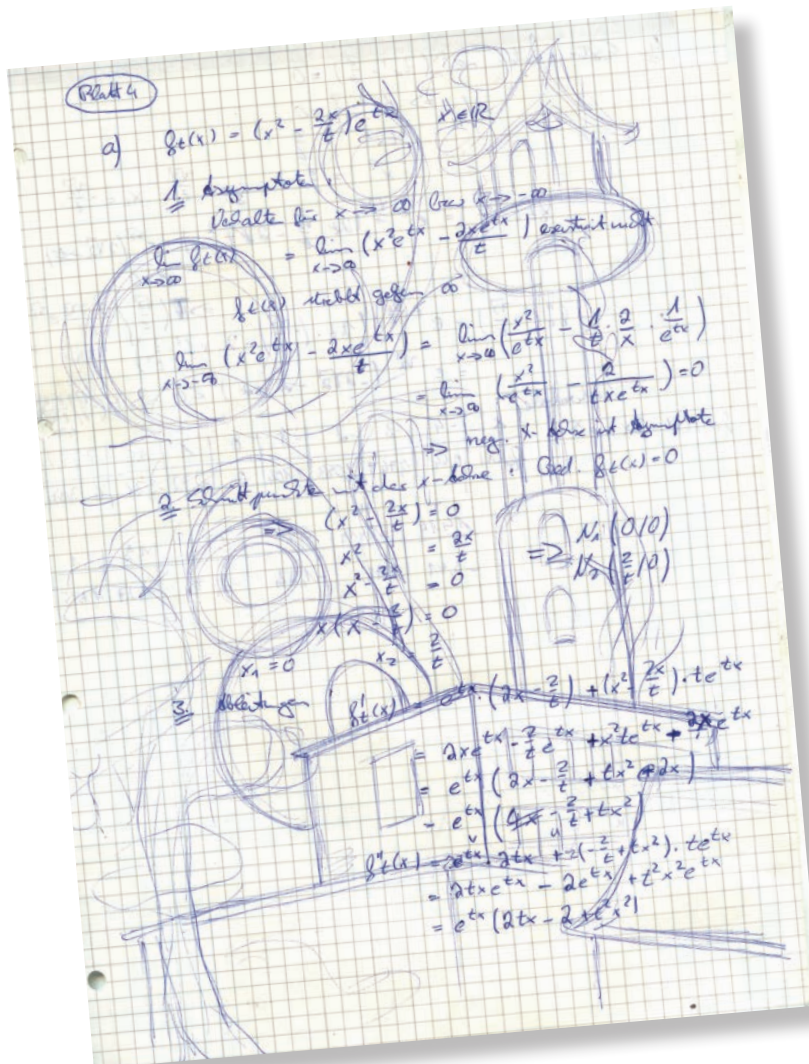 Blatt 4
a) f_t(x) = (x² - 2x/t) e^{tx} x ∈ ℝ
1. Asymptoten:
Verhalten für x → ∞ bzw x → -∞
lim_{x→∞} f_t(x) = lim_{x→∞} (x²e^{tx} - 2xe^{tx}/t) existiert nicht
f_t(x) strebt gegen ∞
lim_{x→-∞} (x²e^{tx} - 2xe^{tx}/t) = lim_{x→∞} (x²/e^{tx} - 1/t · 2/x · 1/e^{tx})
= lim_{x→∞} (x²/e^{tx} - 2/(txe^{tx})) = 0
=> neg. x-Achse ist Asymptote
2. Schnittpunkte mit der x-Achse: Bed. f_t(x) = 0
=> (x² - 2x/t) = 0
x² = 2x/t => N₁ (0/0)
x² - 2x/t = 0 N₂ (2/t/0)
x(x - 2/t) = 0
x₁ = 0 x₂ = 2/t
3. Ableitungen f_t'(x) = e^{tx} · (2x - 2/t) + (x² - 2x/t) · te^{tx}
= 2xe^{tx} - 2/t e^{tx} + x²te^{tx} - 2xe^{tx}
= e^{tx} (2x - 2/t + tx² - 2x)
= e^{tx} (- 2/t + tx²)
f_t''(x) = e^{tx} · 2tx + (-2/t + tx²) · te^{tx}
= 2txe^{tx} - 2e^{tx} + t²x²e^{tx}
= e^{tx} (2tx - 2 + t²x²)